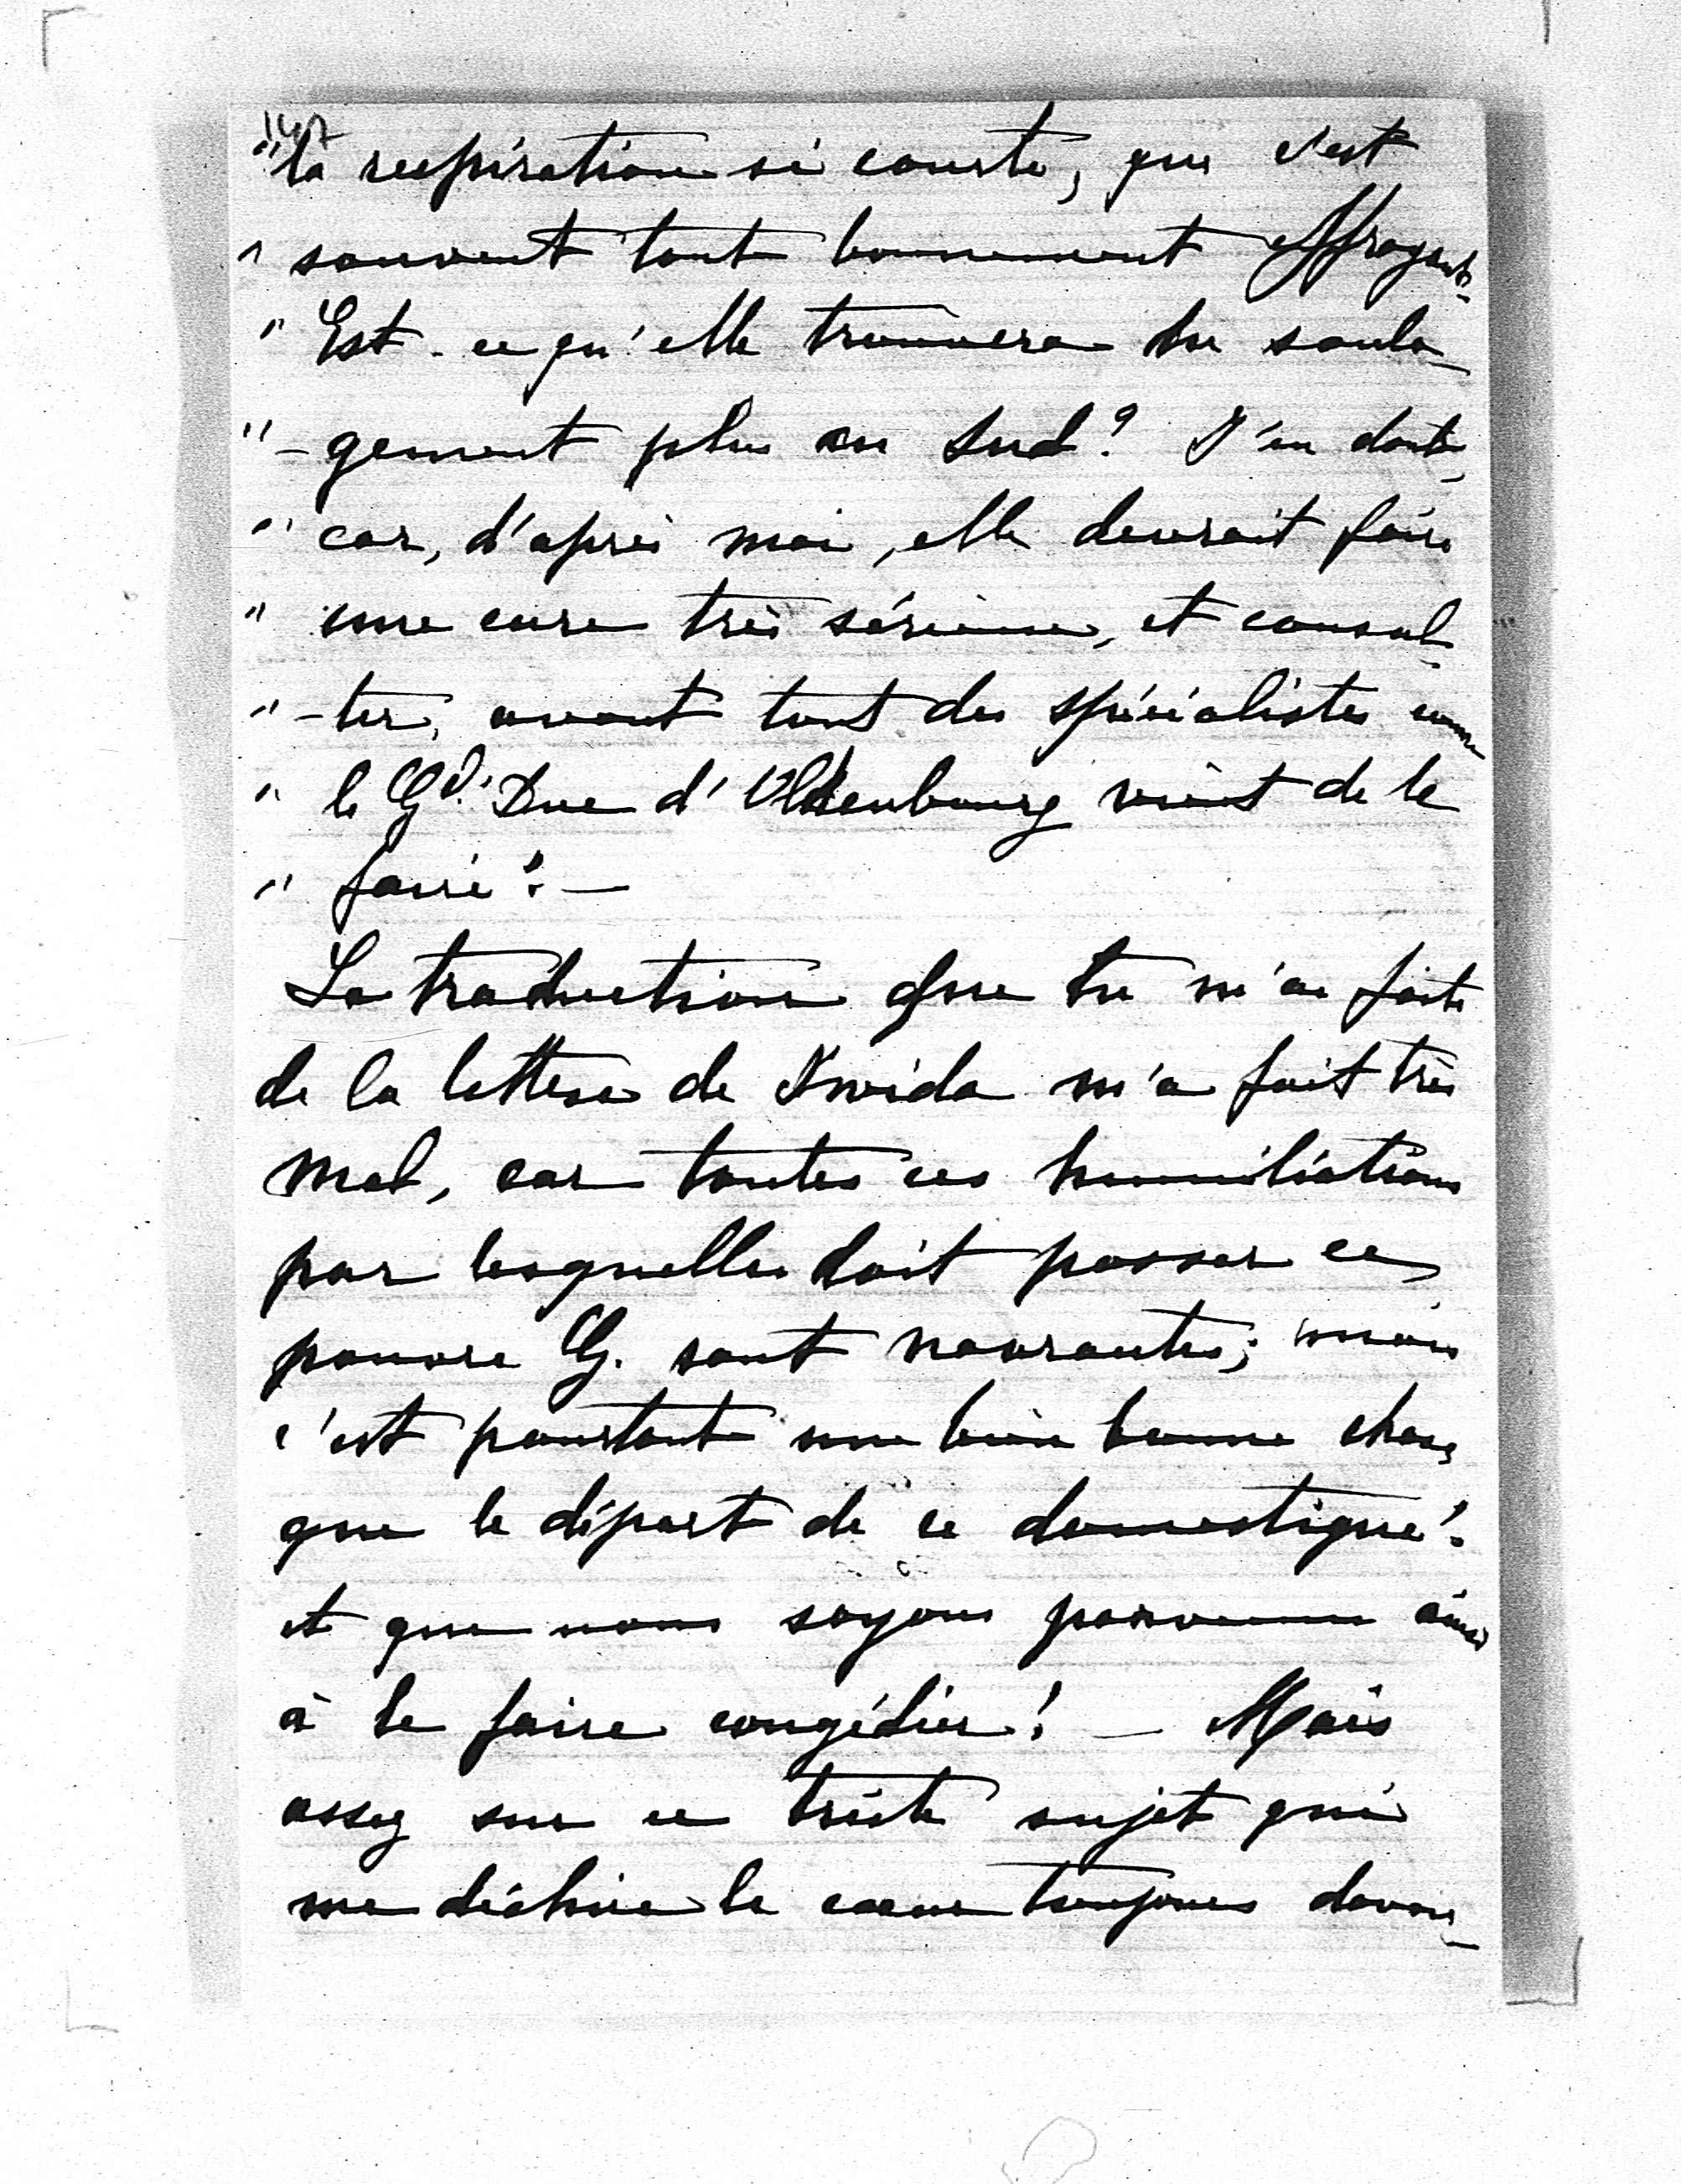 147
"la respiration si courte, que c'est
" souvent tout bonnement effrayant.
" Est-ce qu'elle trouvera du soula-
"-gement plus au Sud? J'en doute,
" car, d'après moi, elle devrait faire
" une cure très sérieuse, et consul-
"-ter, avant tout des spécialistes comme
" le Gd. Duc d'Oldenbourg vient de le
" faire". —
La traduction que tu m'as faite
de la lettre de m'a fait très
mal, car toutes ces humiliations
par lesquelles doit passer ce
pauvre G. sont navrantes; mais
c'est pourtant une bien bonne chose,
que le départ de ce domestique!
et que nous soyons parvenus ainsi
à le faire congédier! — Mais
assez sur ce triste sujet qui
me déchire le cœur toujours davan-